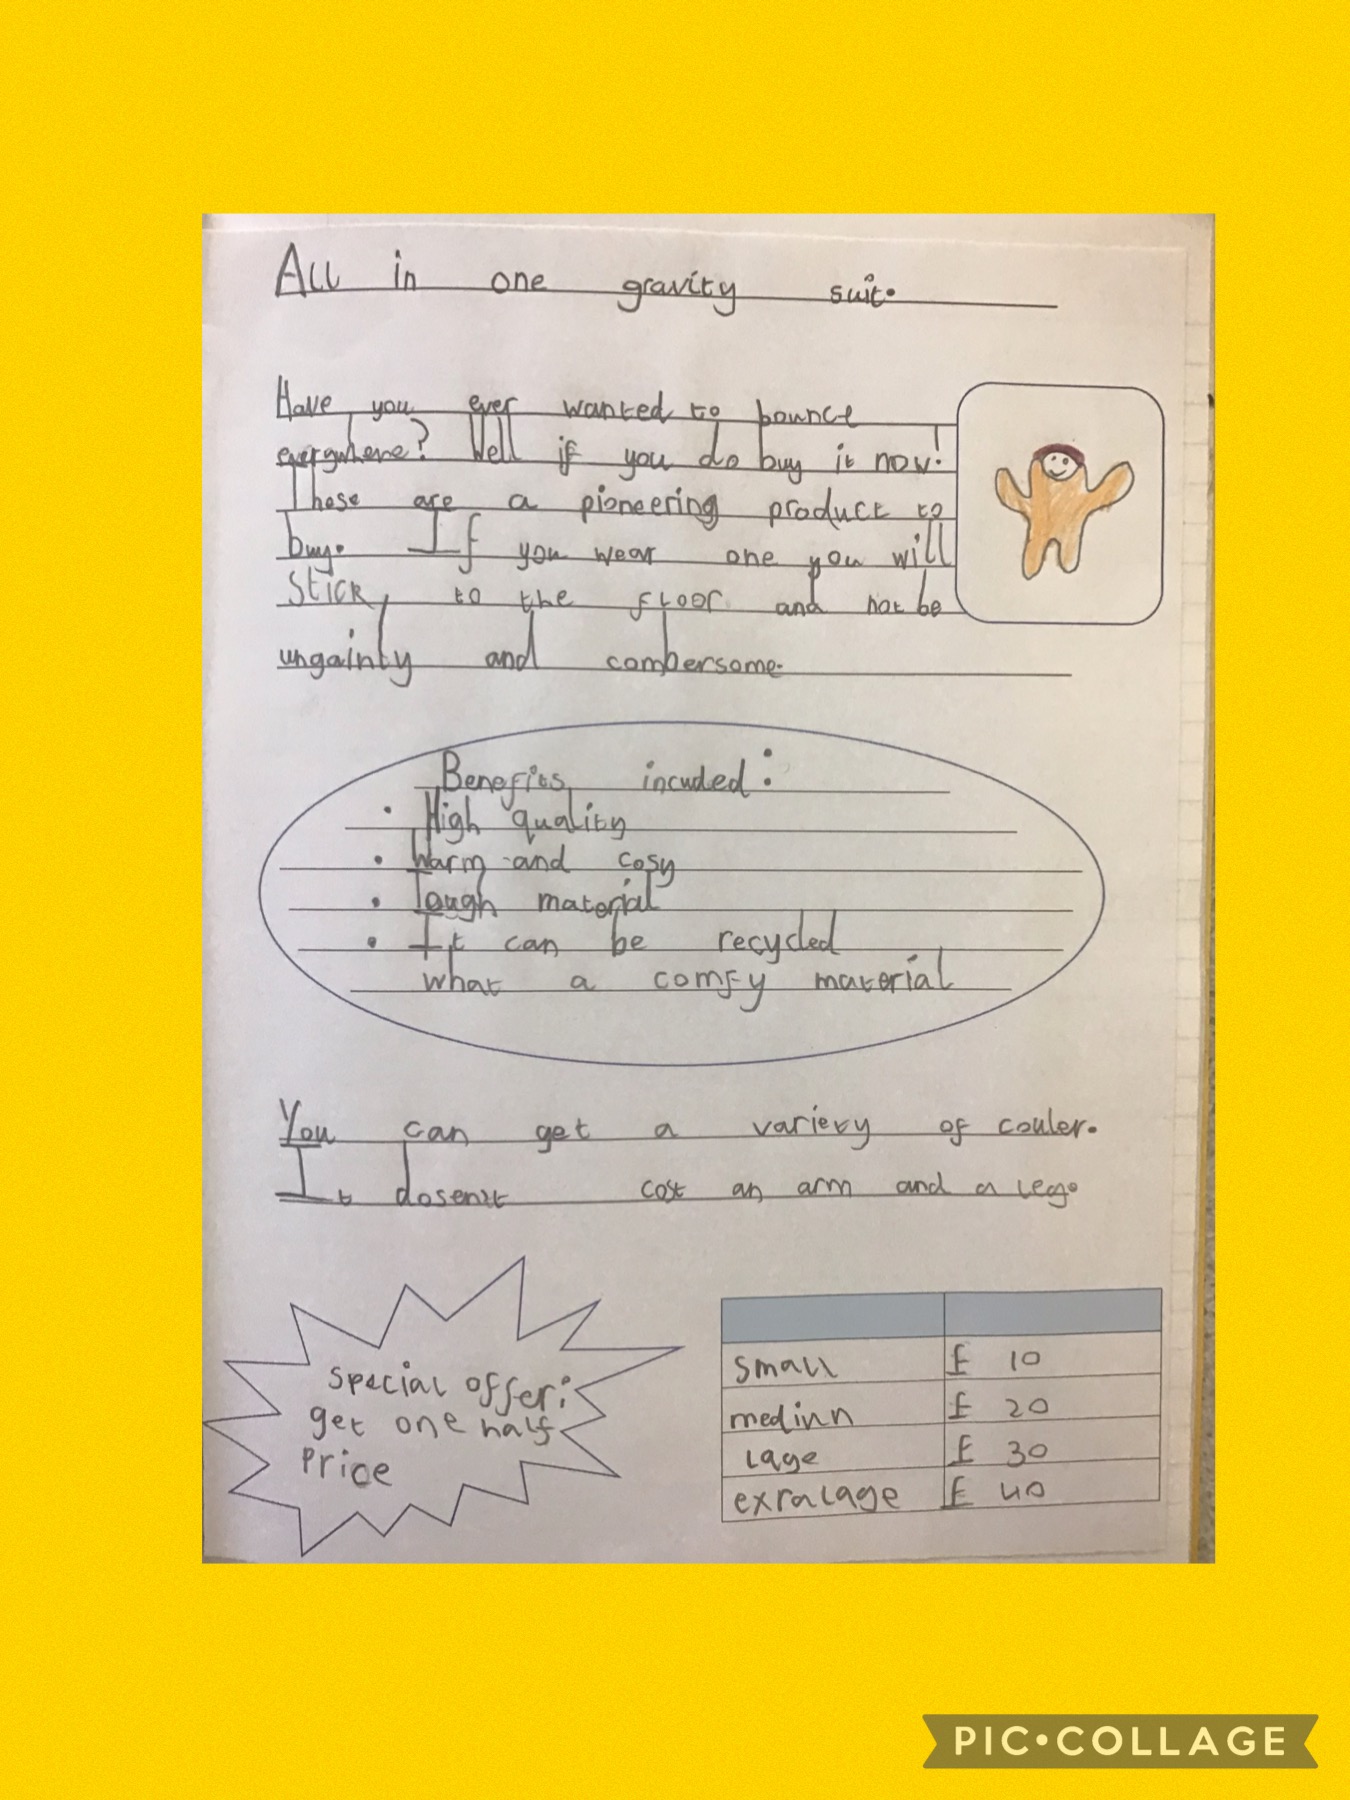 All in one gravity suit.
Have you ever wanted to bounce
everywhere? Well if you do buy it now!
These are a pioneering product to
buy. If you wear one you will
Stick to the floor and not be
ungainly and combersome.
Benefits incuded:
• High quality
• Warm and cosy
• Tough material
• It can be recycled
what a comfy material
You can get a variety of couler.
It dosent cost an arm and a leg.
special offer:
get one half
Price
small £ 10
mediun £ 20
lage £ 30
exralage £ 40
PIC•COLLAGE